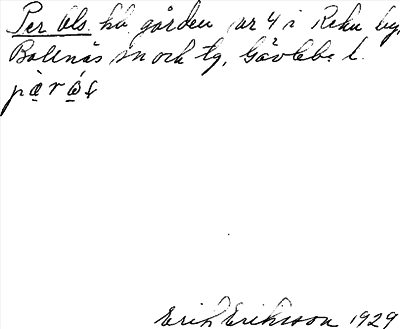 Per Ols. hb gården nr 4 i Reku by,
Bollnäs sn och tg, Gävlebs l.
Erik Eriksson 1929